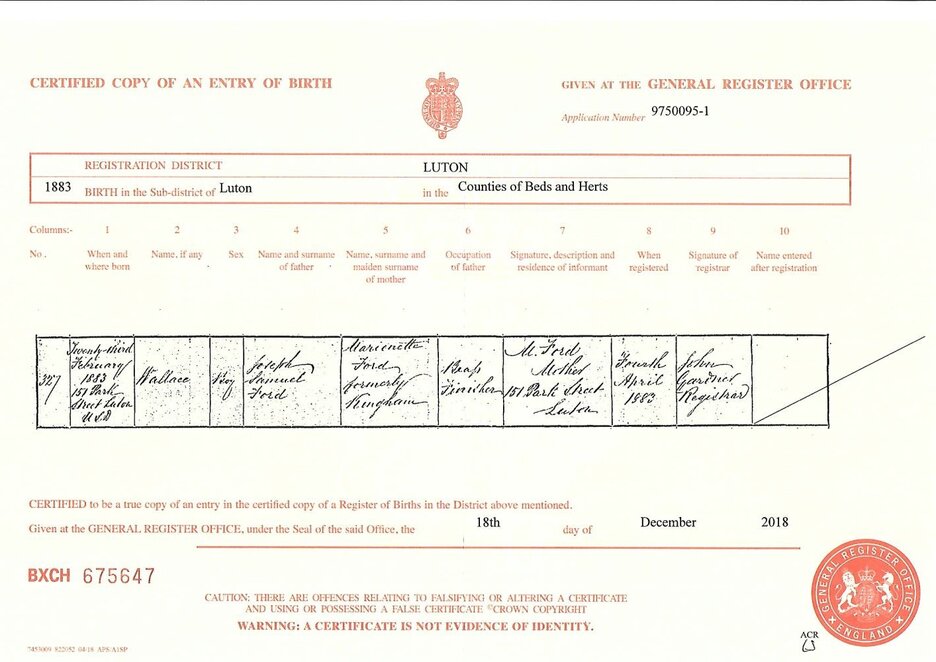 CERTIFIED COPY OF AN ENTRY OF BIRTH
GIVEN AT THE GENERAL REGISTER OFFICE
Application Number 9750095-1
REGISTRATION DISTRICT LUTON
1883 BIRTH in the Sub-district of Luton in the Counties of Beds and Herts
Columns:- 1 2 3 4 5 6 7 8 9 10
No. When and Name, if any Sex Name and surname Name, surname and Occupation Signature, description and When Signature of Name entered
where born of father maiden surname of father residence of informant registered registrar after registration
of mother
327
Twenty-third
February
1883
151 Park
Street Luton
U.S.D
Wallace
Boy
Joseph
Samuel
Ford
Marionette
Ford
formerly
Kingham
Brass
Finisher
M. Ford
Mother
151 Park Street
Luton
Fourth
April
1883
John
Gardner
Registrar
CERTIFIED to be a true copy of an entry in the certified copy of a Register of Births in the District above mentioned.
Given at the GENERAL REGISTER OFFICE, under the Seal of the said Office, the 18th day of December 2018
BXCH 675647
CAUTION: THERE ARE OFFENCES RELATING TO FALSIFYING OR ALTERING A CERTIFICATE
AND USING OR POSSESSING A FALSE CERTIFICATE ©CROWN COPYRIGHT
WARNING: A CERTIFICATE IS NOT EVIDENCE OF IDENTITY.
GENERAL REGISTER OFFICE
ENGLAND
ACR
7453009 822052 04/18 APS/A1SP